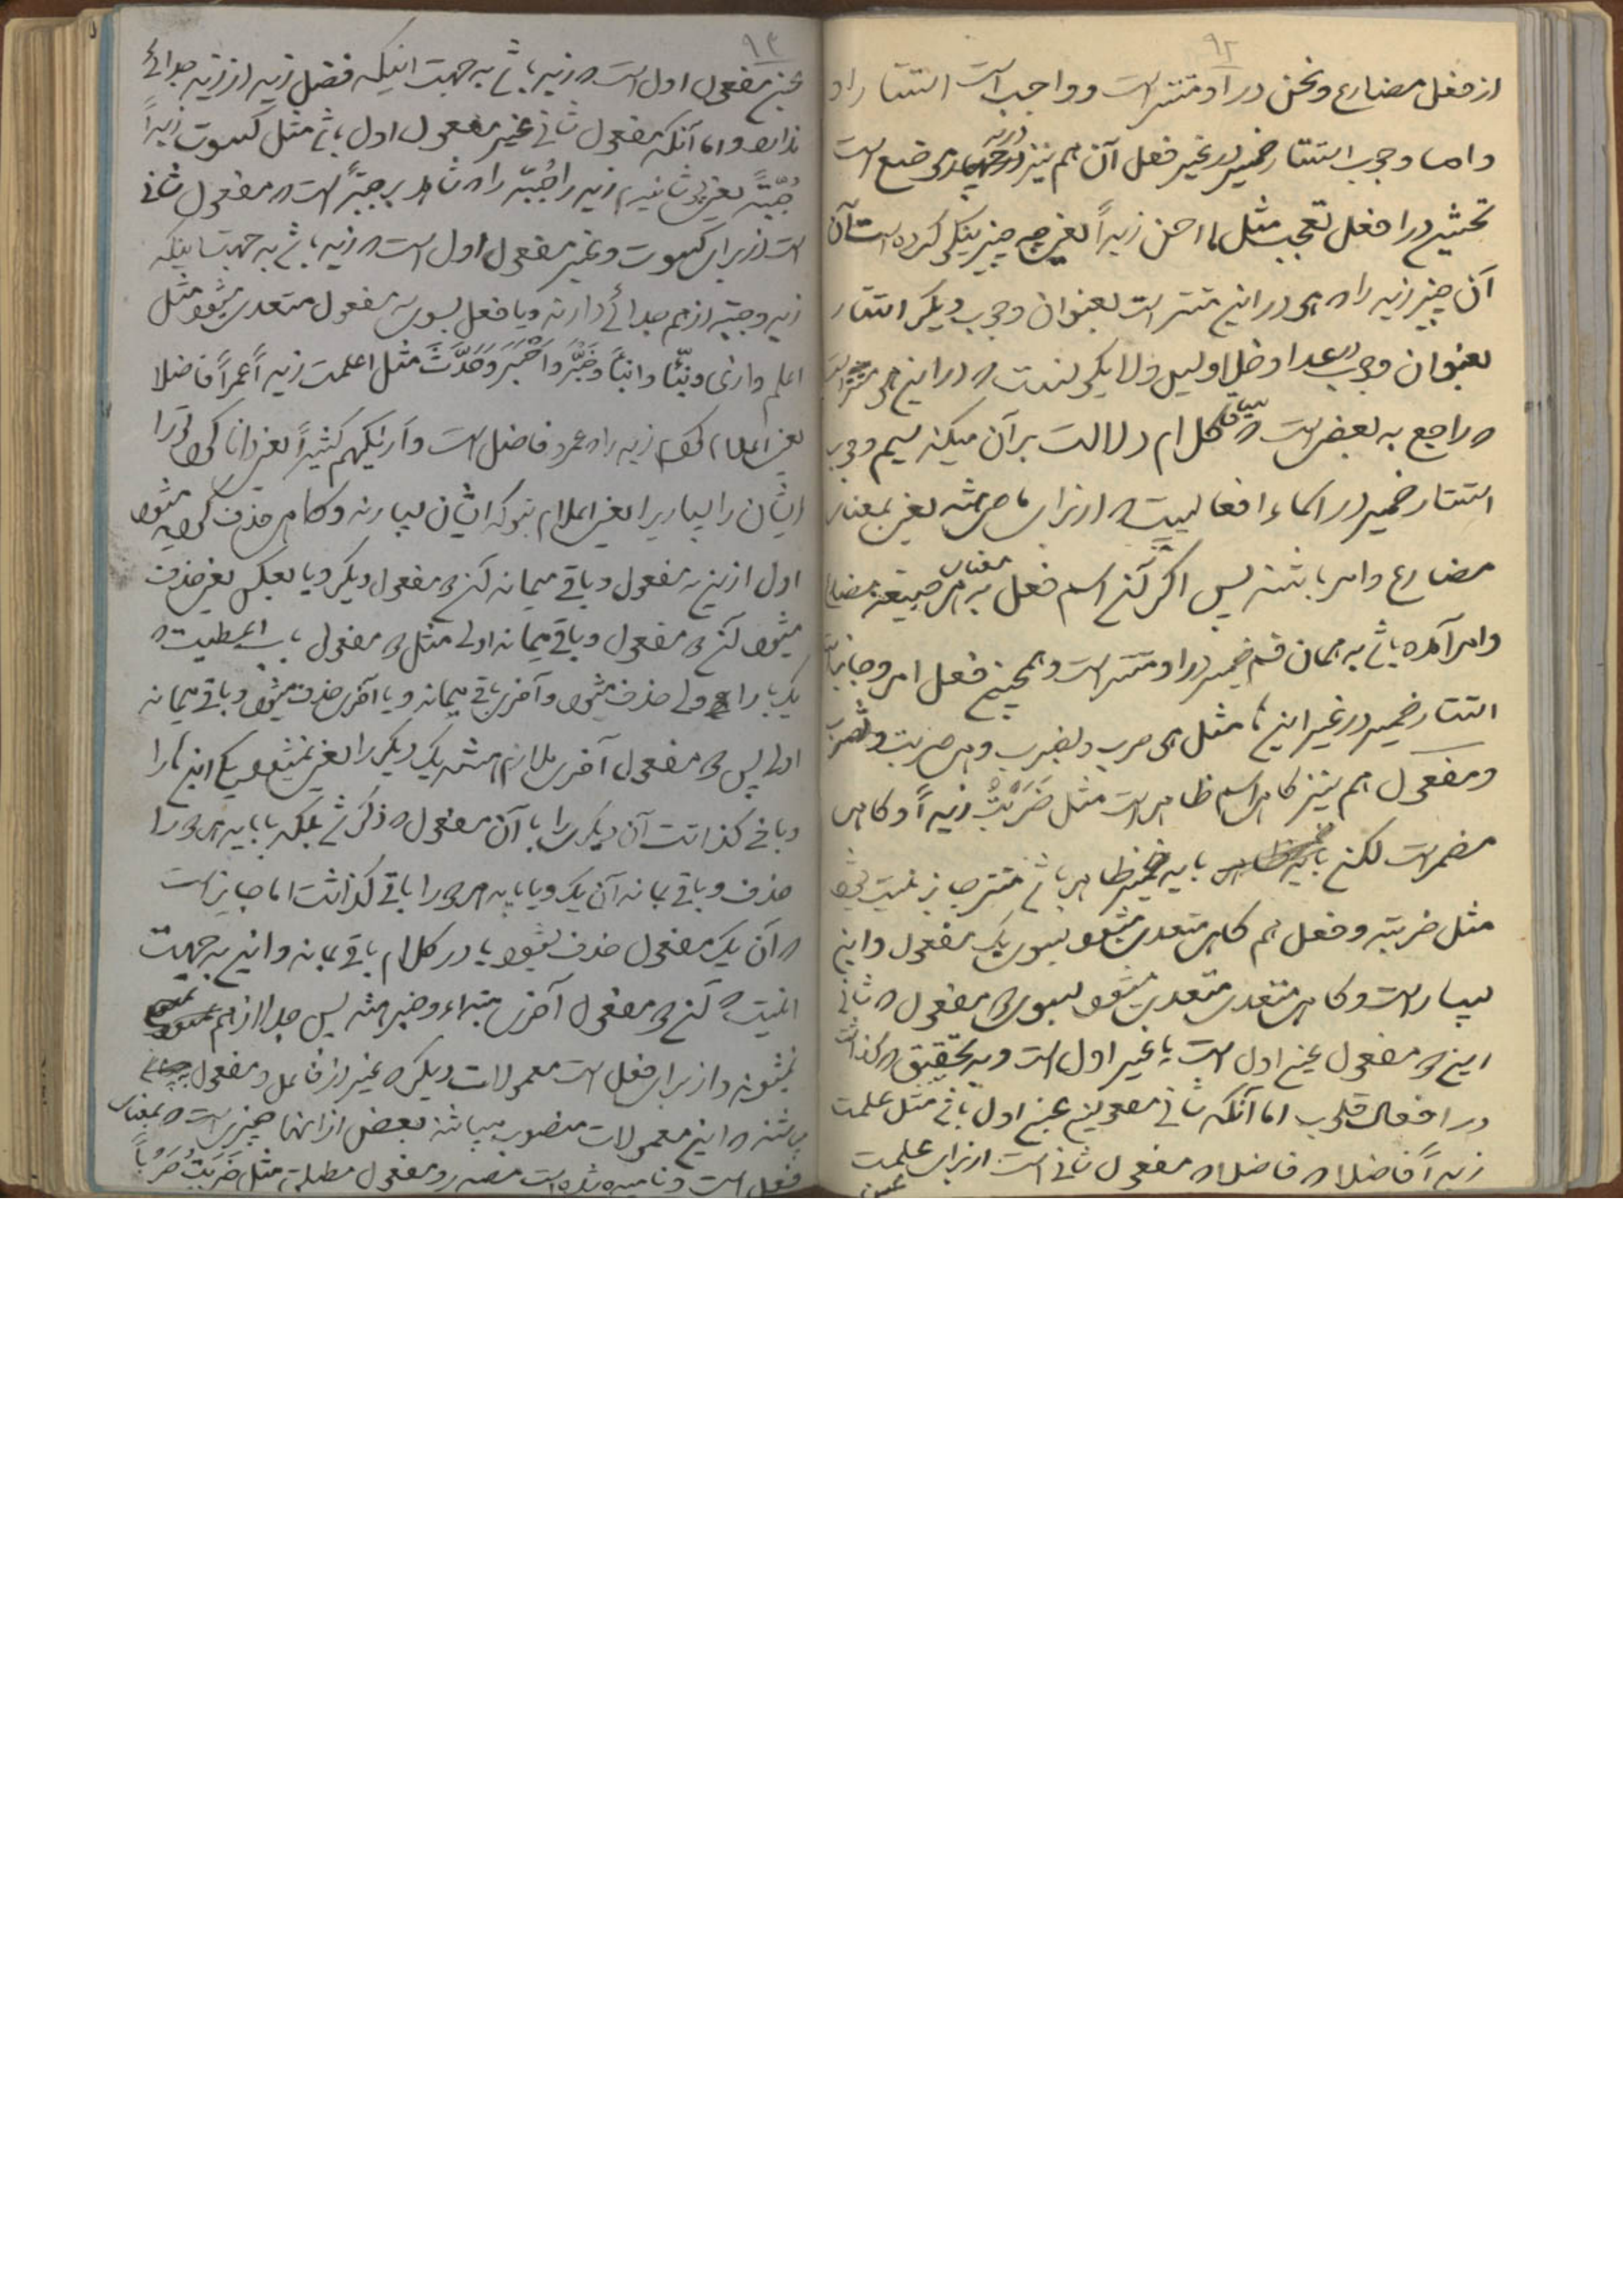 ۹۲
از فعل مضارع و نحن در او مستتر است و واجب است استتار او
و اما وجوب استتار ضمیر در غیر فعل آن هم نیز در موضع است
نخستین در افعل تعجب مثل ما احسن زیداً یعنی چه چیز نیکو کرده است آن
آن چیز زید را که هو در این مستتر است بعنوان وجوب دیگر استتار
بعنوان وجوب در عدا و خلا و لیس و لا یکون است که در این هو مستتر است
که راجع به بعض است که سیاق کلام دلالت بر آن میکند سیم وجوب
استتار ضمیر در اسماء افعالیست که از برای ماضی یعنی بمعنای
مضارع و امر باشند پس اگر آن اسم فعل به معنای صیغه مضارع
و امر آمده باشد به همان قسم ضمیر در او مستتر است و همچنین فعل امر و جایز است
استتار ضمیر در غیر اینها مثل هو ضرب و یضرب و هی ضربت و تضرب
و مفعول هم نیز گاهی اسم ظاهر است مثل ضَرَبْتُ زیداً و گاهی
مضمر است لکن باید ضمیر ظاهر باشد مستتر جایز نیست بشود
مثل ضربته و فعل هم گاهی متعدی میشود بسوی یک مفعول و این
بسیار است و گاهی متعدی میشود بسوی دو مفعول که ثانی
این دو مفعول عین اول است یا غیر اول است و به تحقیق که گذشت
در افعال قلوب اما آنکه ثانی مفعولین عین اول باشد مثل علمت
زیداً فاضلا که فاضلا که مفعول ثانی است از برای علمت
عین
۹۳
عین مفعول اول است که زید باشد به جهت اینکه فضل زید از زید جدائی
ندارد و اما آنکه مفعول ثانی غیر مفعول اول باشد مثل کسوت زیداً
جُبّةً یعنی پوشانیدم زید را جُبّه را که شاهد بر جبّةً است که مفعول ثانی
است از برای کسوت و غیر مفعول اول است که زید باشد به جهت اینکه
زید و جبّه از هم جدائی دارند و یا فعل بسوی سه مفعول متعدی میشود مثل
اعلم و اری و نبّأ و انبأ و خَبَّرَ و اَخْبَرَ و حَدَّثَ مثل اعلمت زیداً عمراً فاضلا
یعنی اعلام کردم زید را که عمرو فاضل است و اریکهم کثیراً یعنی دانا کرد تو را
ایشان را بسیار یعنی اعلام بتو که ایشان بسیارند و گاهی حذف کرده میشود
اول از این سه مفعول و باقی میماند آن دو مفعول دیگر و یا بعکس یعنی حذف
میشود آن دو مفعول و باقی میماند اولی مثل دو مفعول باب اعطیت که
یکبار اولی حذف میشود و آخری باقی میماند و یا آخری حذف میشود و باقی میماند
اولی پس دو مفعول آخری ملازم هستند یک دیگر را یعنی نمیشود یکی اینها را
و باقی گذاشت آن دیگری را با آن مفعول که ذکر شد بلکه یا باید هر دو را
حذف و باقی بماند آن یک و یا باید هر دو را باقی گذاشت اما جایز است
که آن یک مفعول حذف بشود یا در کلام باقی بماند و این به جهت
اینست که آن دو مفعول آخری مبتداء و خبر هستند پس جدا از هم
نمیشوند و از برای فعل است معمولات دیگر که غیر از فاعل و مفعول به
باشند که این معمولات منصوب میباشند بعضی از آنها چیزی است که بمعنای
فعل است و نامیده شده است مصدر و مفعول مطلق مثل ضَرَبْتُ ضَرْباً